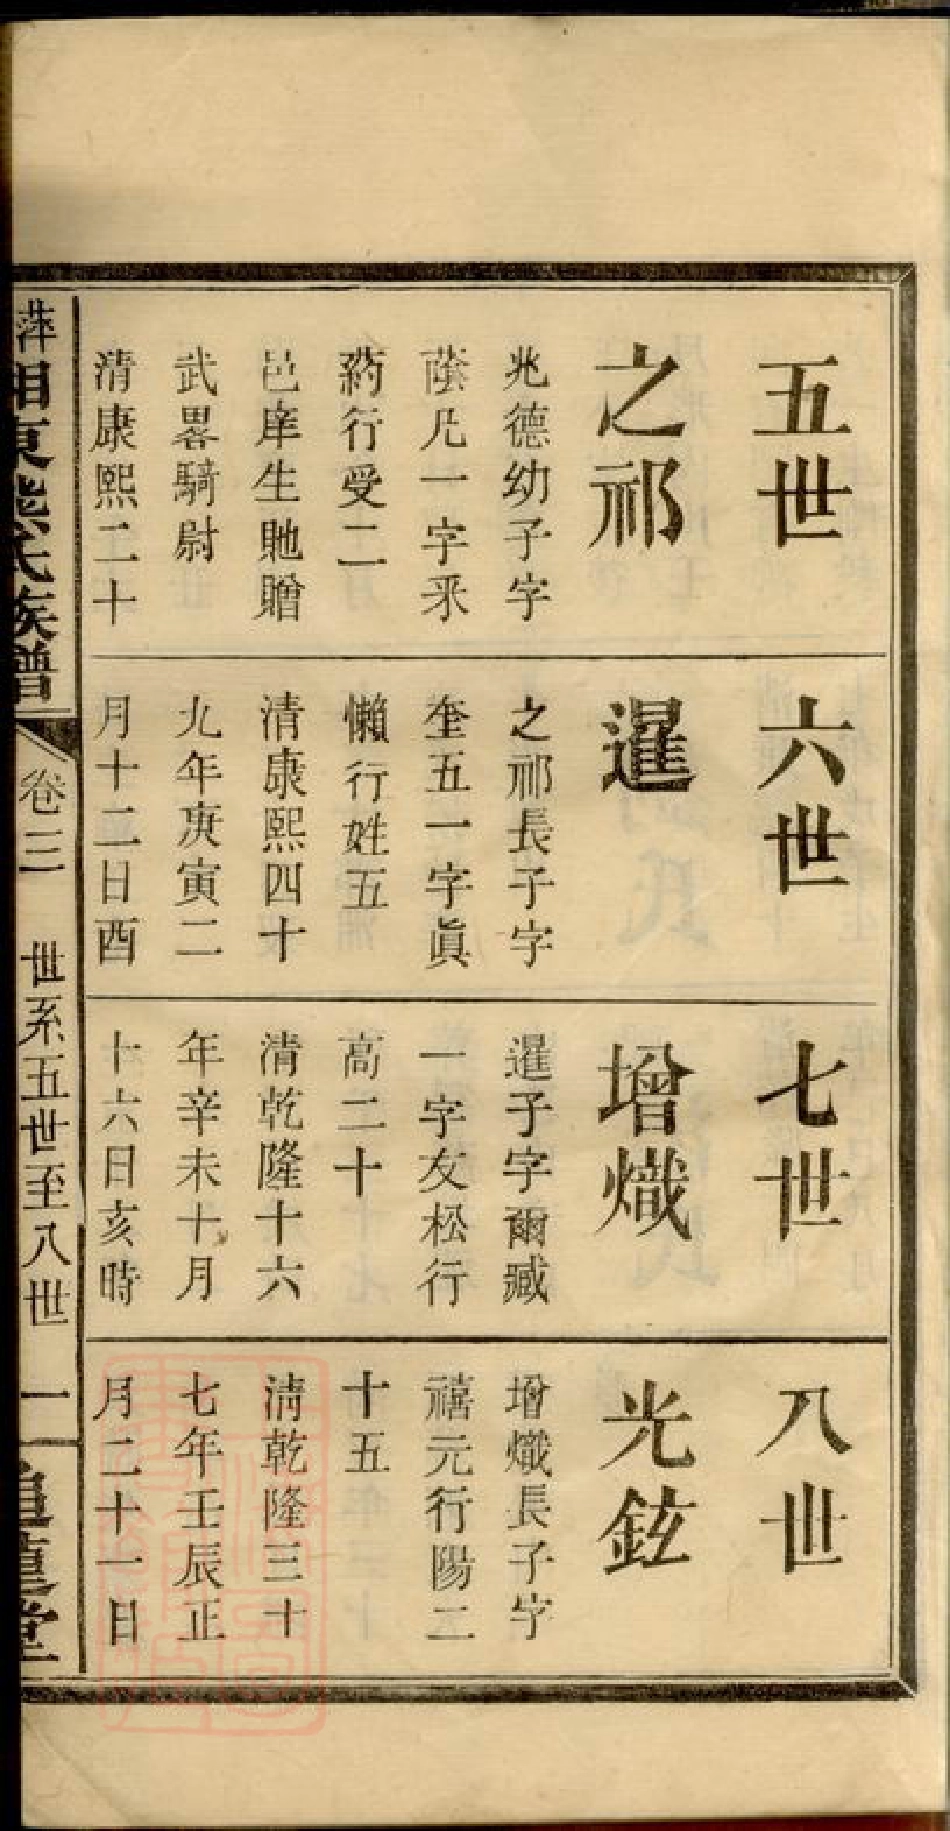 五世
之祁
兆德幼子字
蔭凡一字采
葯行受二
邑庠生貤贈
武畧騎尉
清康熙二十
六世
暹
之祁長子字
奎五一字眞
懶行姓五
清康熙四十
九年庚寅二
月十二日酉
七世
增熾
暹子字爾臧
一字友松行
高二十
清乾隆十六
年辛未十月
十六日亥時
八世
光鉉
增熾長子字
禧元行陽二
十五
清乾隆三十
七年壬辰正
月二十一日
萍湘東熊氏族譜
卷三 世系五世至八世
一
堂